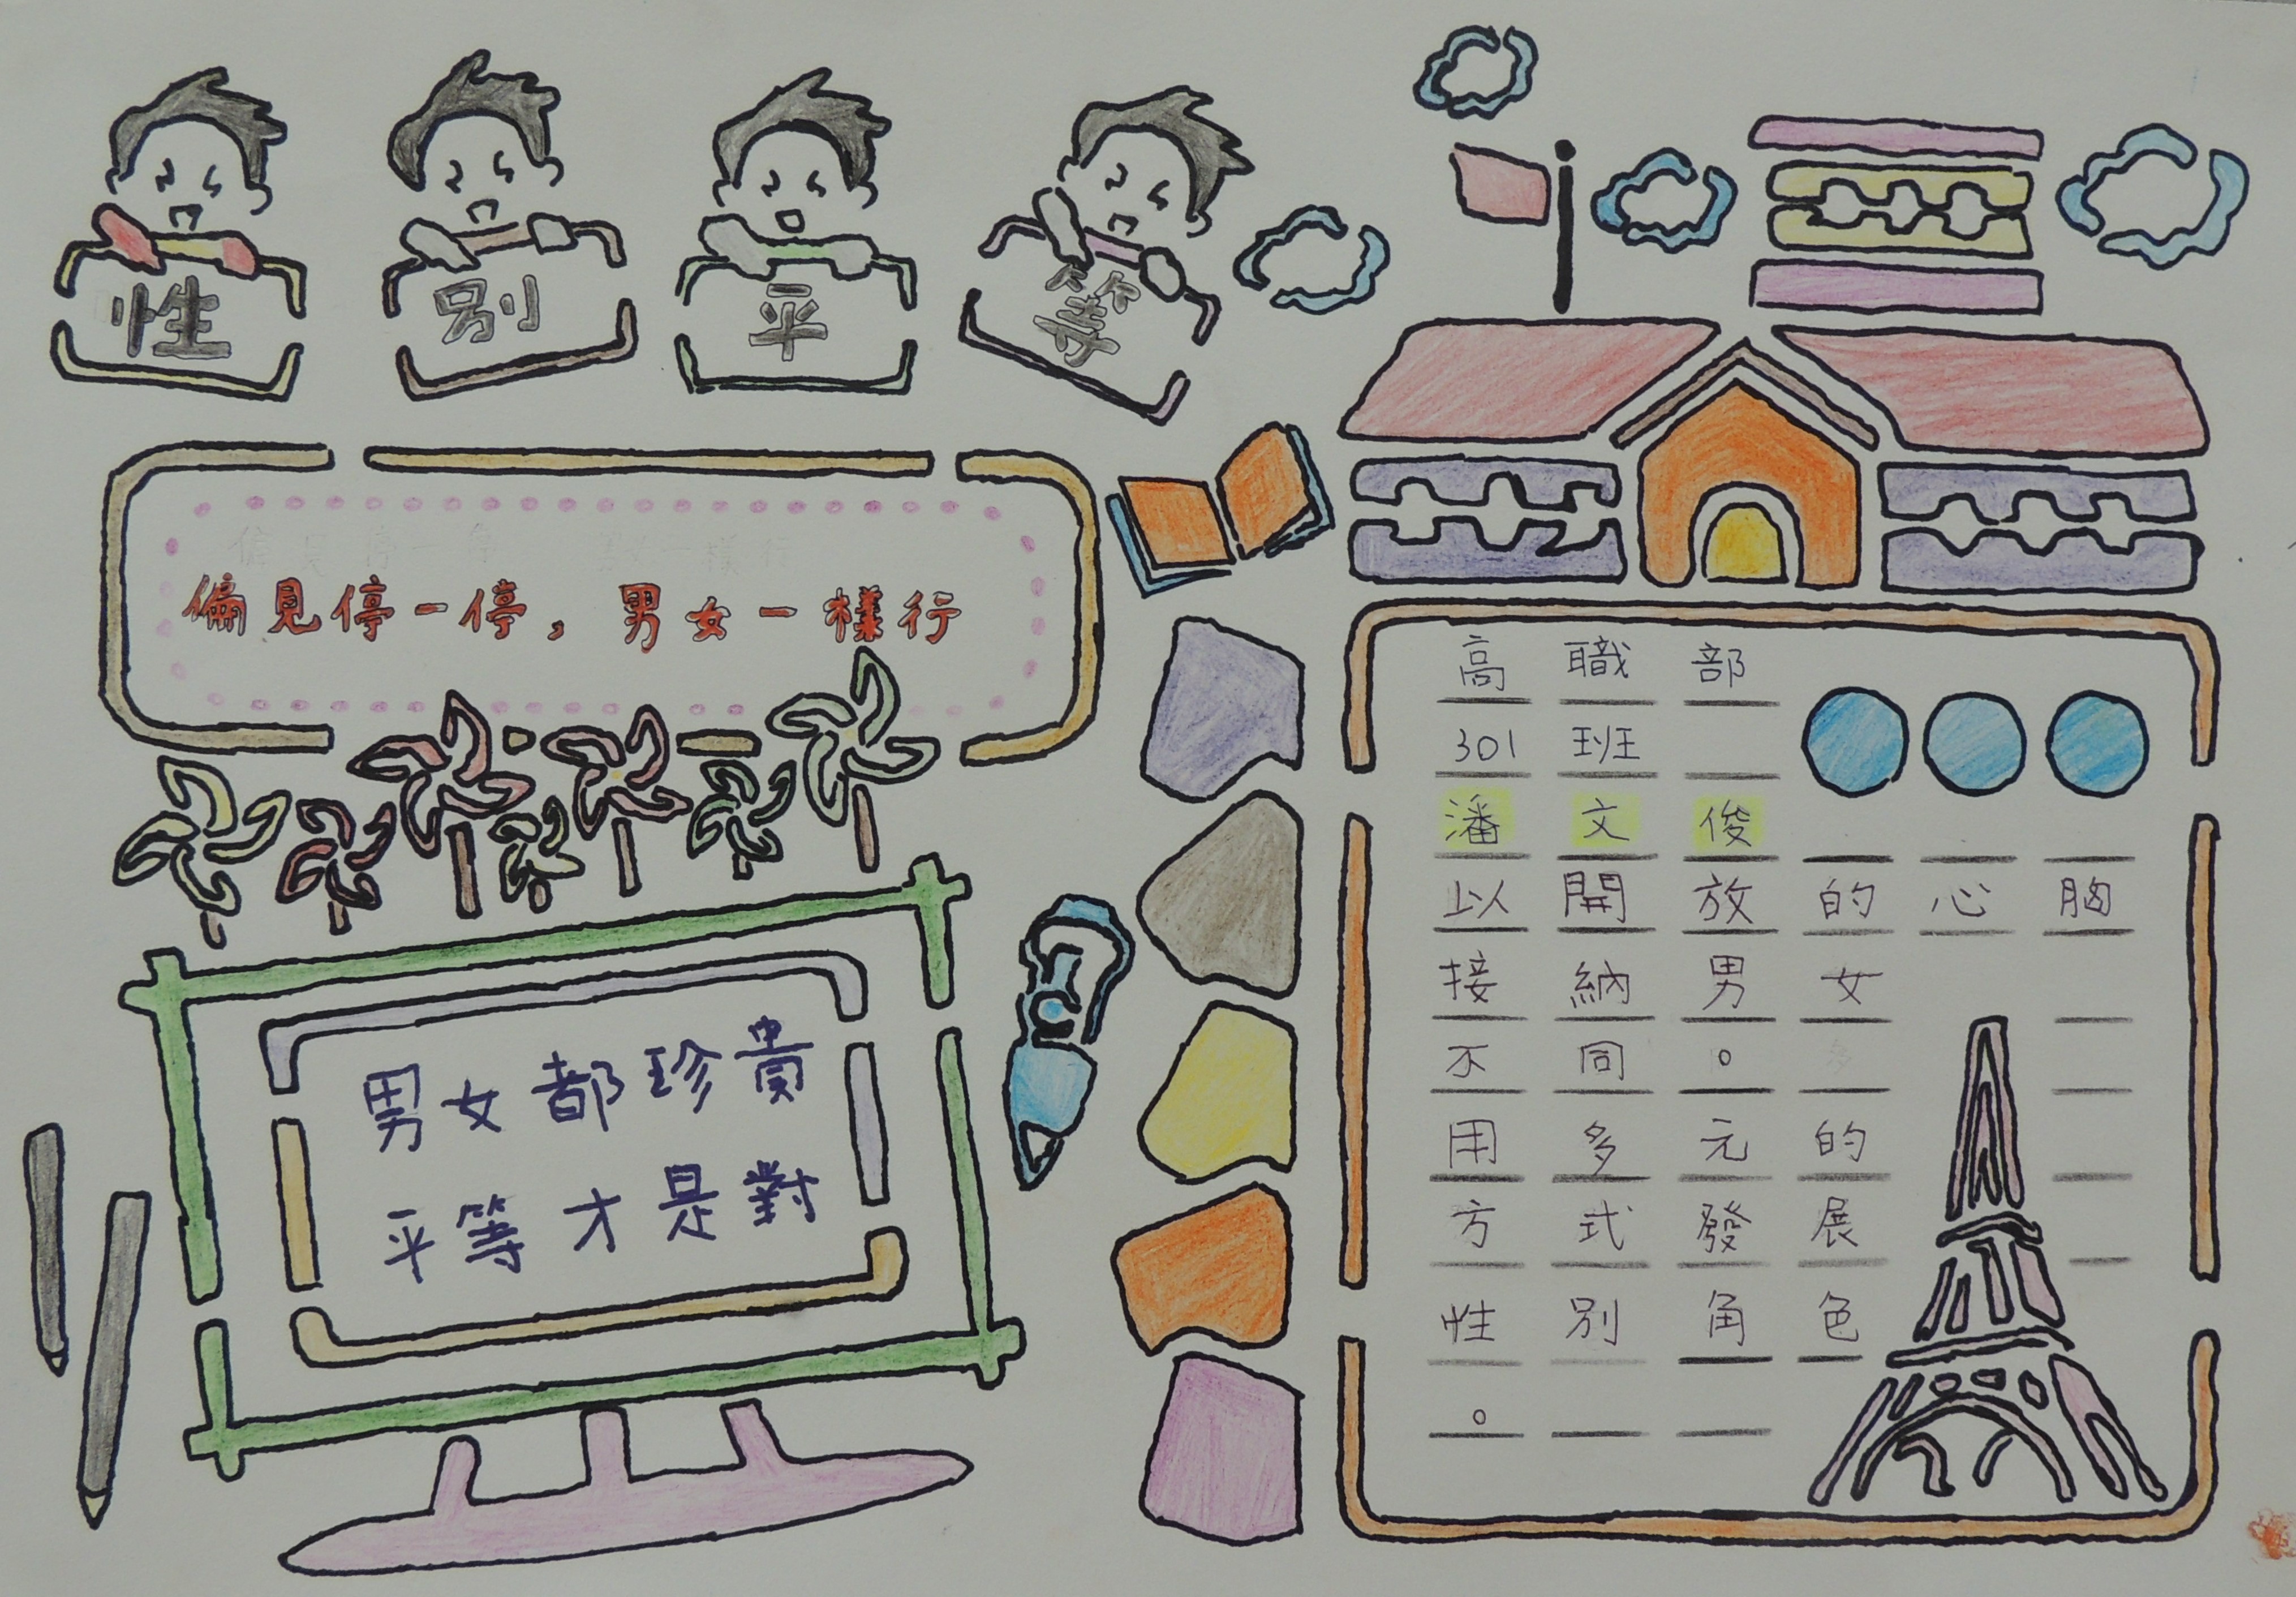 性別平等
偏見停一停，男女一樣行
男女都珍貴
平等才是對
高職部
301班
潘文俊
以開放的心胸
接納男女
不同。
用多元的
方式發展
性別角色
。